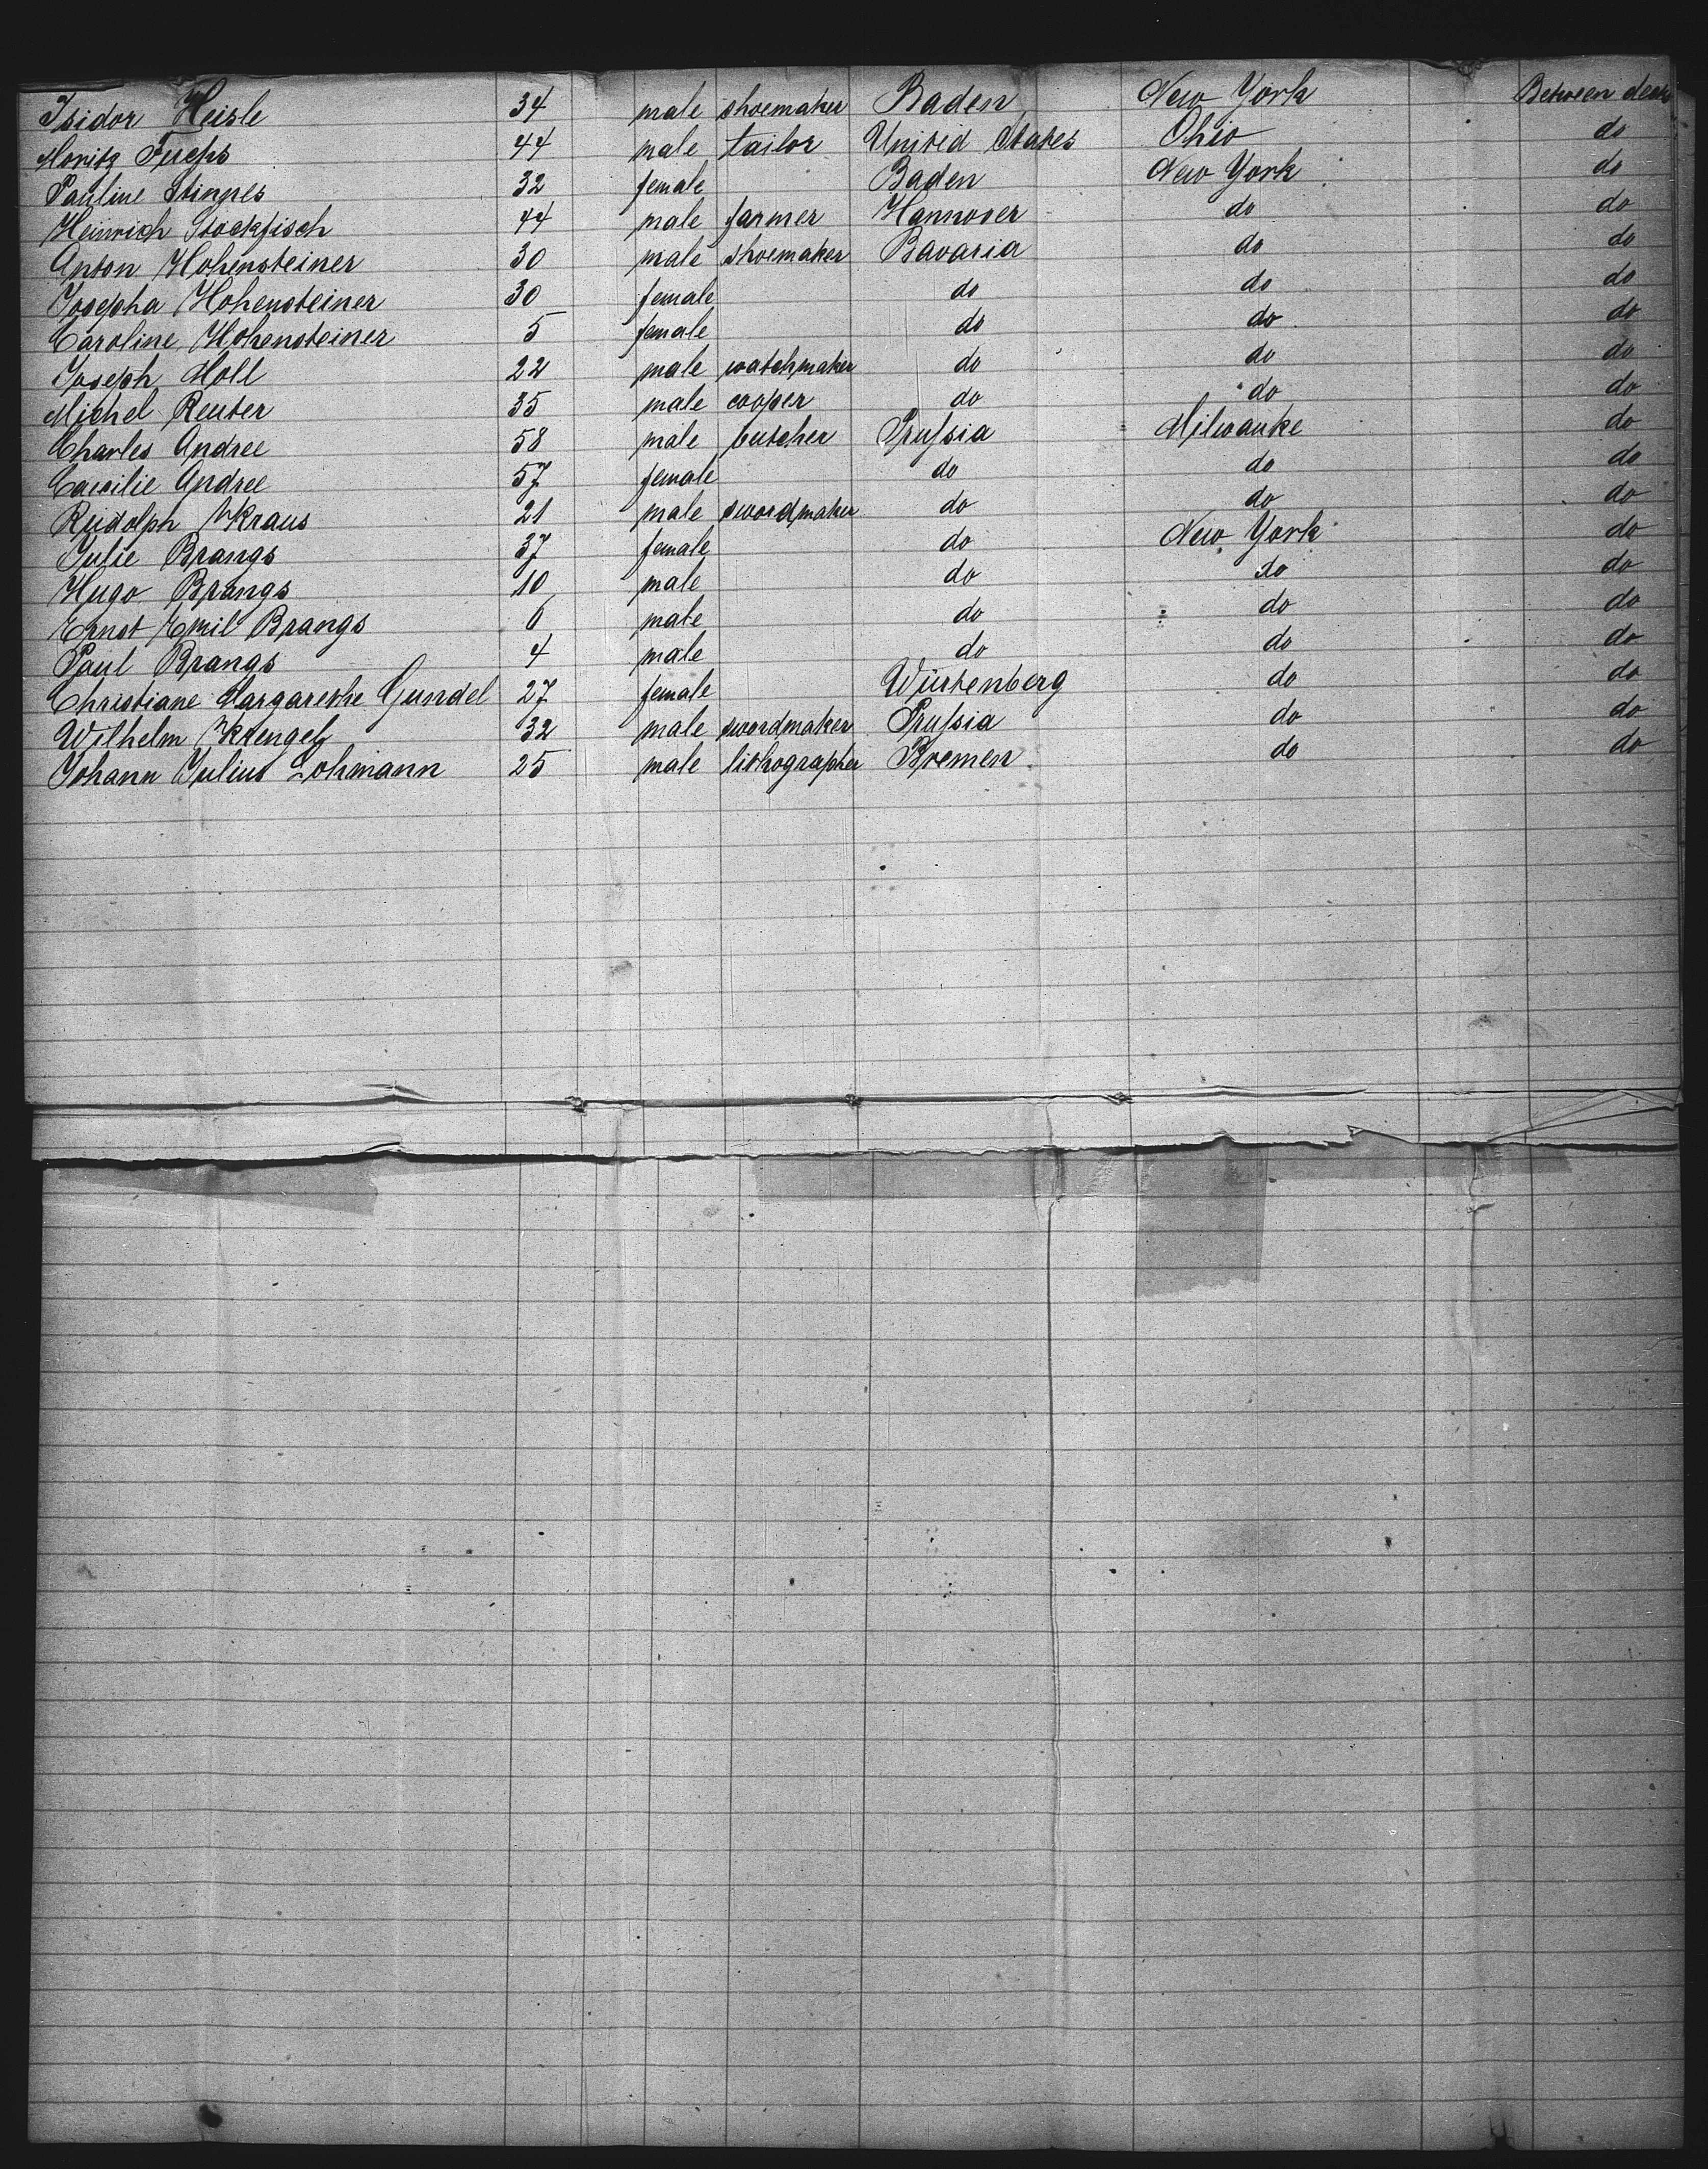 Isidor Heisle 34 male shoemaker Baden New York Between decks
Moritz Fuchs 44 male tailor United States Ohio do
Pauline Stinnes 32 female Baden New York do
Heinrich Stockfisch 44 male farmer Hannover do do
Anton Hohensteiner 30 male shoemaker Bavaria do do
Josepha Hohensteiner 30 female do do do
Caroline Hohensteiner 5 female do do do
Joseph Holl 22 male watchmaker do do do
Michel Reuter 35 male cooper do do do
Charles Andree 58 male butcher Prussia Milwauke do
Caecilie Andree 57 female do do do
Rudolph Kraus 21 male swordmaker do do do
Julie Brangs 37 female do New York do
Hugo Brangs 10 male do do do
Ernst Emil Brangs 6 male do do do
Paul Brangs 4 male do do do
Christiane Margarethe Gundel 27 female Würtenberg do do
Wilhelm 32 male swordmaker Prussia do do
Johann Julius Lohmann 25 male lithographer Bremen do do